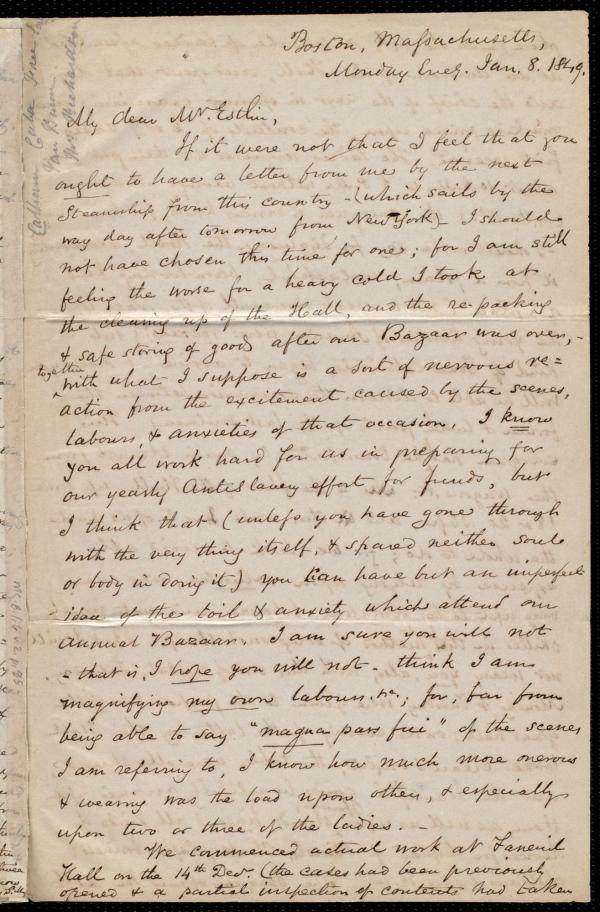 Boston, Massachusetts,
Monday Eveg. Jan. 8. 1849.
My dear Mr. Estlin,
If it were not that I feel that you
ought to have a letter from me by the next
Steamship from this country - (which sails by the
way day after tomorrow from New York) - I should
not have chosen this time for one; for I am still
feeling the worse for a heavy cold I took at
the clearing up of the Hall, and the re-packing
& safe storing of goods after our Bazaar was over, -
together with what I suppose is a sort of nervous re=
action from the excitement caused by the scenes,
labours, & anxieties of that occasion. I know
you all work hard for us in preparing for
our yearly Antislavery effort for funds, but
I think that (unless you have gone through
with the very thing itself, & spared neither soul
or body in doing it) you can have but an imperfect
idea of the toil & anxiety which attend our
Annual Bazaar. I am sure you will not
- that is, I hope you will not - think I am
magnifying my own labours &c.; for, far from
being able to say "magna pars fui" of the scenes
I am referring to, I know how much more onerous
& wearing was the load upon others, & especially
upon two or three of the ladies. -
We commenced actual work at Faneuil
Hall on the 14th Decr. (the cases had been previously
opened & a partial inspection of contents had taken
Calhoun Cuba
Van Buren
Mr Richardson